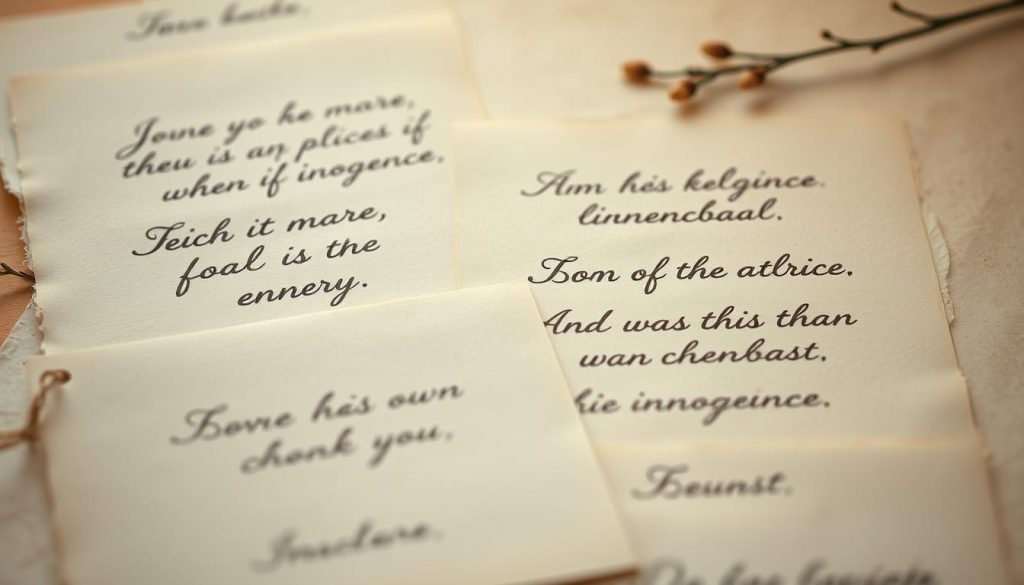 Jowne yo he mare,
theu is any plices if
when if inogence.
Teich it mare,
foal is the
ennery.
Am hés kelgince.
linnencbaal.
Bom of the atlrice.
And was this than
wan chenbast.
hie innogeince.
Bovre hés own
chonk you.
Beunst.